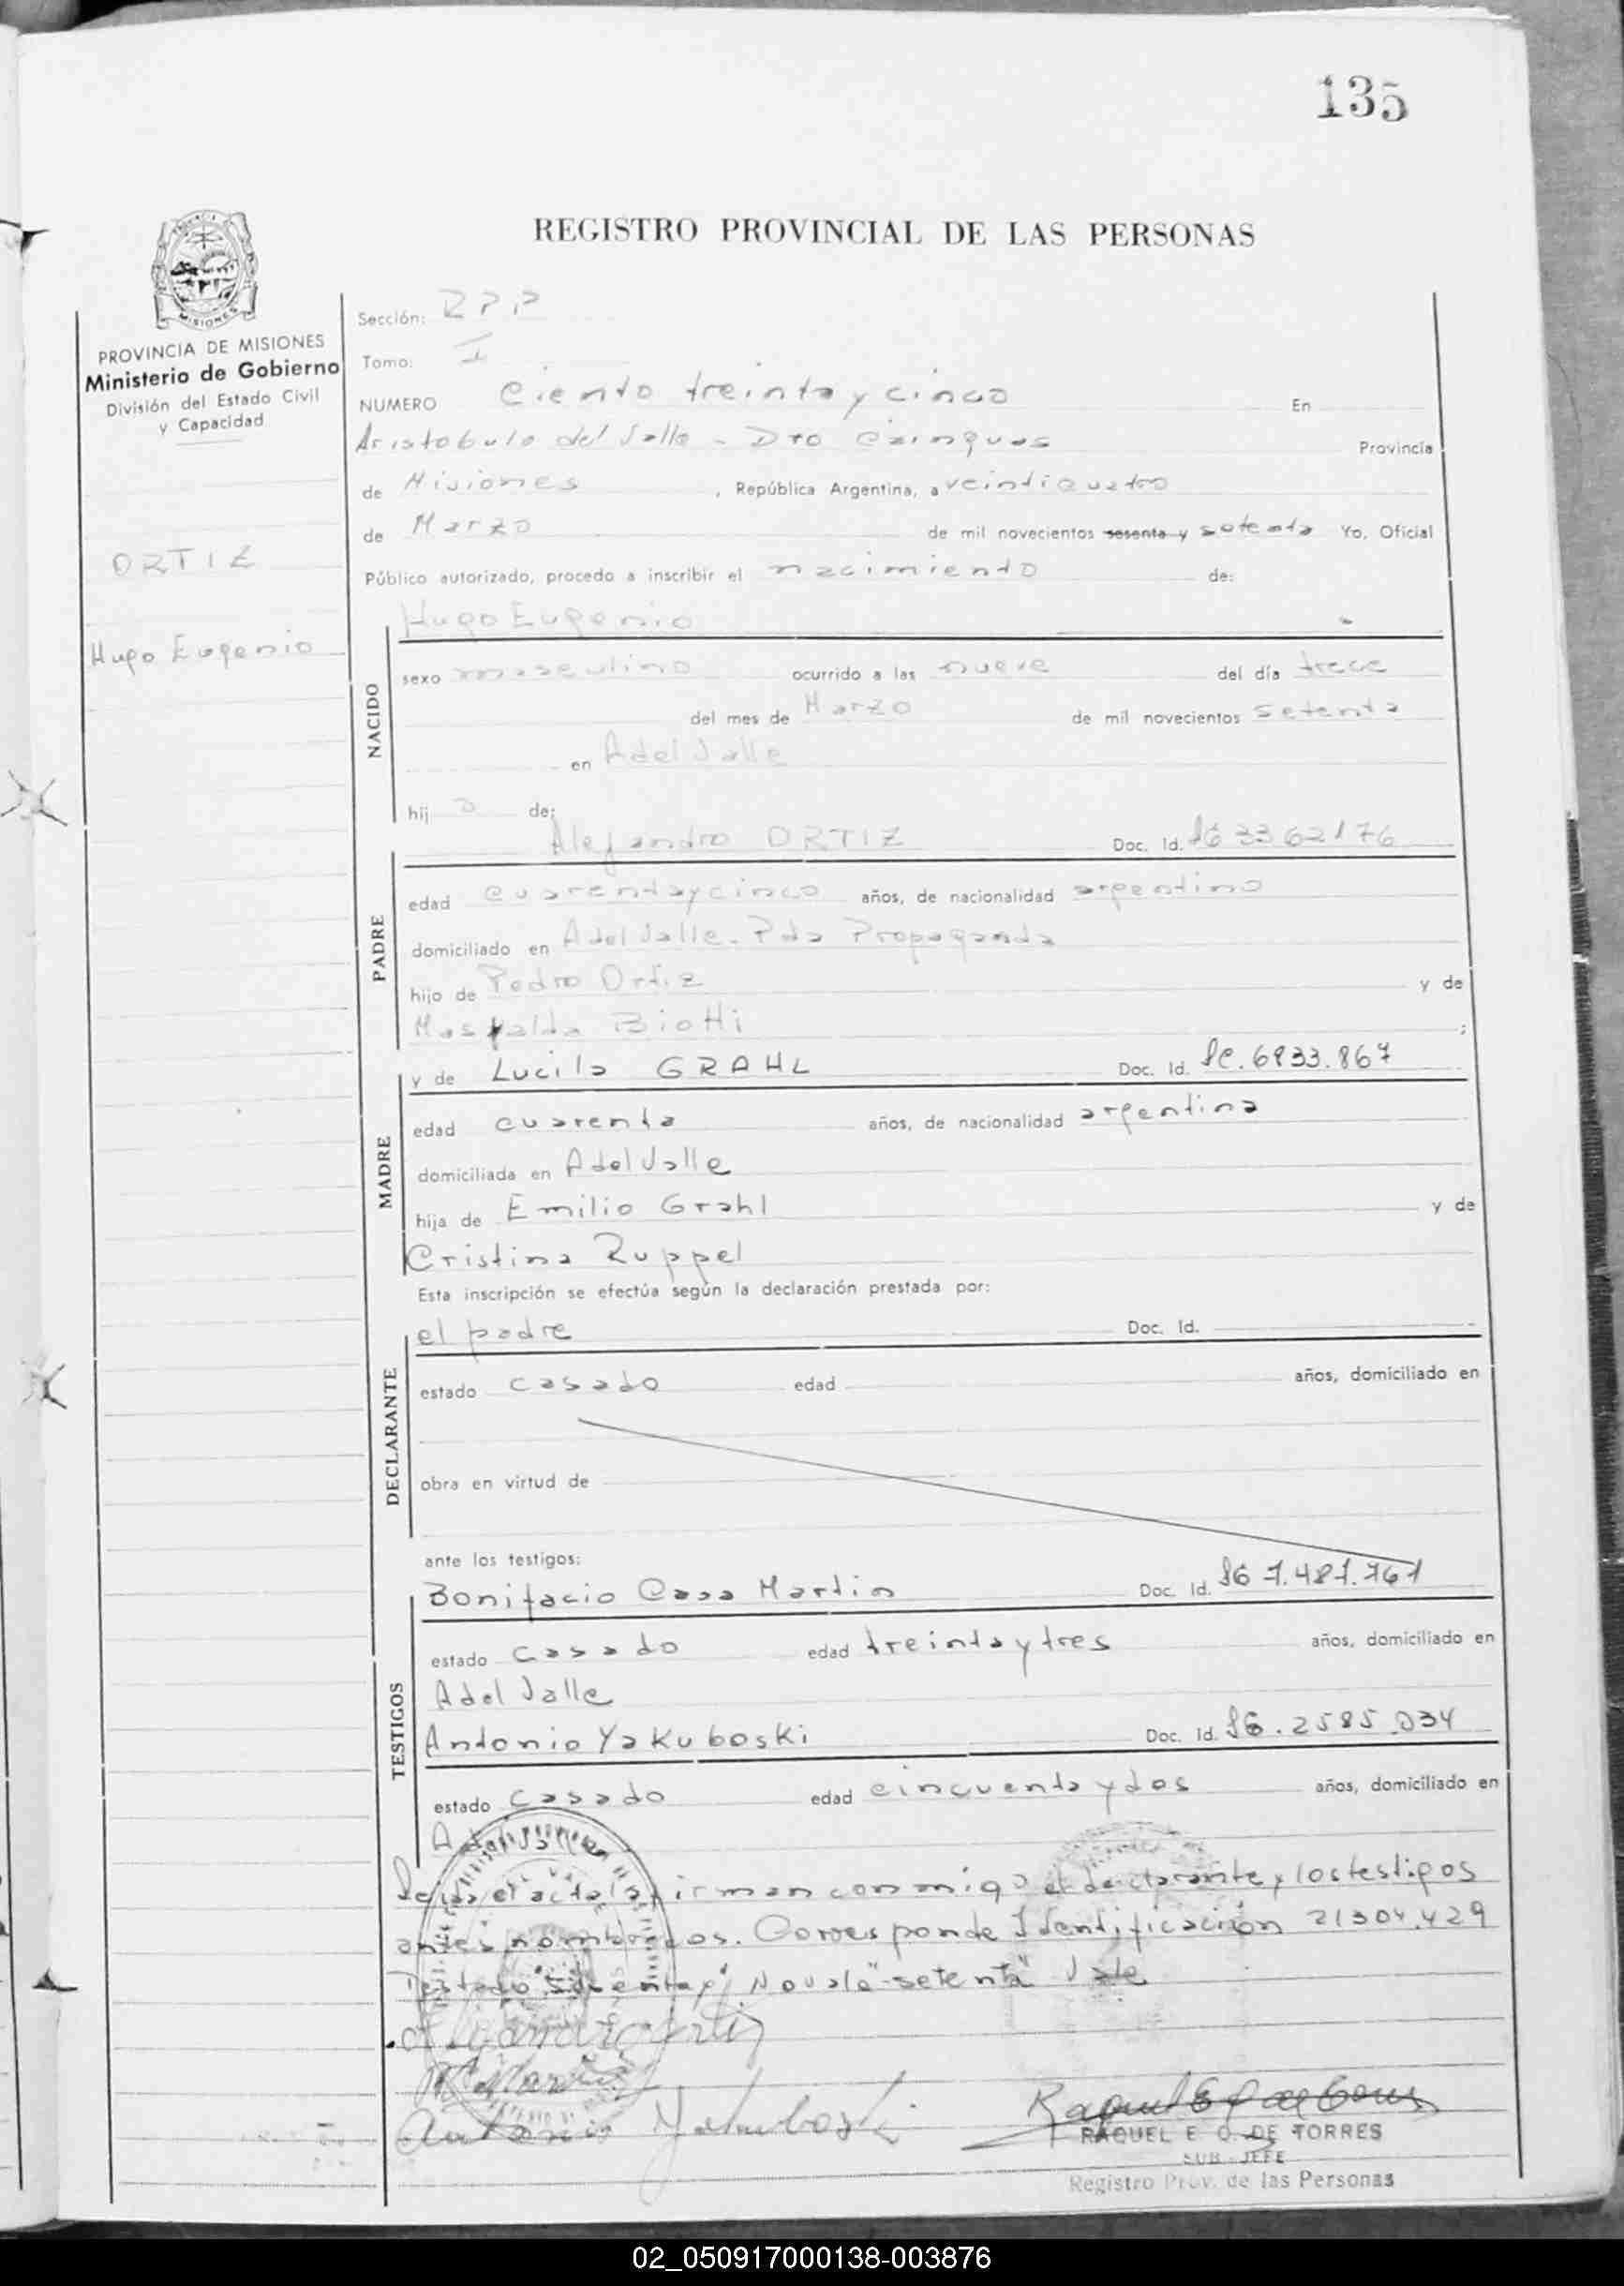 135
REGISTRO PROVINCIAL DE LAS PERSONAS
MISIONES
PROVINCIA DE MISIONES
Ministerio de Gobierno
División del Estado Civil
y Capacidad
ORTIZ
Hugo Eugenio
Sección: R P P
Tomo: I
NUMERO Ciento treinta y cinco En
Aristobulo del Valle - Dto Cainguas Provincia
de Misiones, República Argentina, a veinticuatro
de Marzo de mil novecientos sesenta y setenta Yo, Oficial
Público autorizado, procedo a inscribir el nacimiento de:
Hugo Eugenio
NACIDO
sexo masculino ocurrido a las nueve del día trece
del mes de Marzo de mil novecientos setenta
en A del Valle
hijo de:
Alejandro ORTIZ Doc. Id. 3362176
PADRE
edad cuarenta y cinco años, de nacionalidad argentino
domiciliado en A del Valle - Pda Propaganda
hijo de Pedro Ortiz y de
Biotti;
y de Lucila GRAHL Doc. Id. 6833.867
MADRE
edad cuarenta años, de nacionalidad argentina
domiciliada en A del Valle
hija de Emilio Grahl y de
Cristina Ruppel
Esta inscripción se efectúa según la declaración prestada por:
el padre Doc. Id.
DECLARANTE
estado casado edad años, domiciliado en
obra en virtud de
ante los testigos:
Bonifacio Casa Martin Doc. Id. 7.487.767
TESTIGOS
estado casado edad treinta y tres años, domiciliado en
A del Valle
Antonio Yakuboski Doc. Id. 2585.034
estado casado edad cincuenta y dos años, domiciliado en
A del Valle
Leida el acta la firman conmigo el declarante y los testigos
antes nombrados. Corresponde Identificación 21304.429
Testado "sesenta y" No vale "setenta" Vale
Alejandro Ortiz
Antonio Yakuboski
RAQUEL E. O. DE TORRES
SUB - JEFE
Registro Prov. de las Personas
02_050917000138-003876